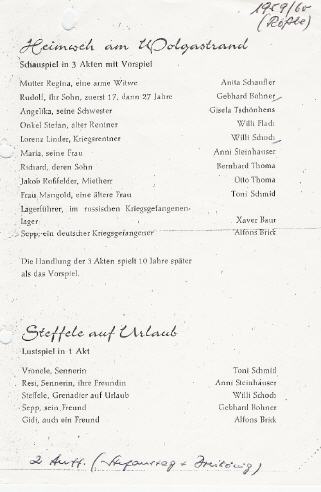 1959/60
(Rößle)
Heimweh am Wolgastrand
Schauspiel in 3 Akten mit Vorspiel
Mutter Regina, eine arme Witwe Anita Schaufler
Rudolf, ihr Sohn, zuerst 17, dann 27 Jahre Gebhard Böhner
Angelika, seine Schwester Gisela Tschönhens
Onkel Stefan, alter Rentner Willi Fladi
Lorenz Linder, Kriegsrentner Willi Schoch
Maria, seine Frau Anni Steinhauser
Richard, deren Sohn Bernhard Thoma
Jakob Roßfelder, Mietherr Otto Thoma
Frau Mangold, eine ältere Frau Toni Schmid
Lagerführer, im russischen Kriegsgefangenen-
lager Xaver Baur
Sepp, ein deutscher Kriegsgefangener Alfons Brick
Die Handlung der 3 Akten spielt 10 Jahre später
als das Vorspiel.
Steffele auf Urlaub
Lustspiel in 1 Akt
Vronele, Sennerin Toni Schmid
Resi, Sennerin, ihre Freundin Anni Steinhäuser
Steffele, Grenadier auf Urlaub Willi Schoch
Sepp, sein Freund Gebhard Böhner
Gidi, auch ein Freund Alfons Brick
2 Auff. (Stefanstag + Dreikönig)